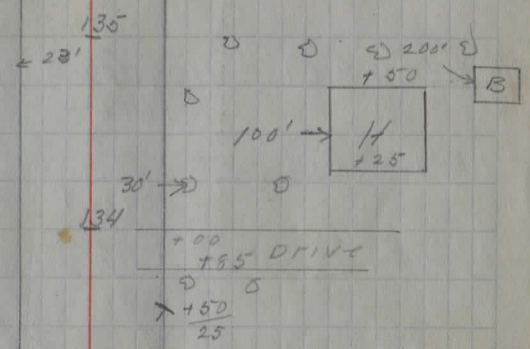 135
23'
200'
+50
B
100'
H
+25
30'
134
+00
+85 DRIVE
+50
25